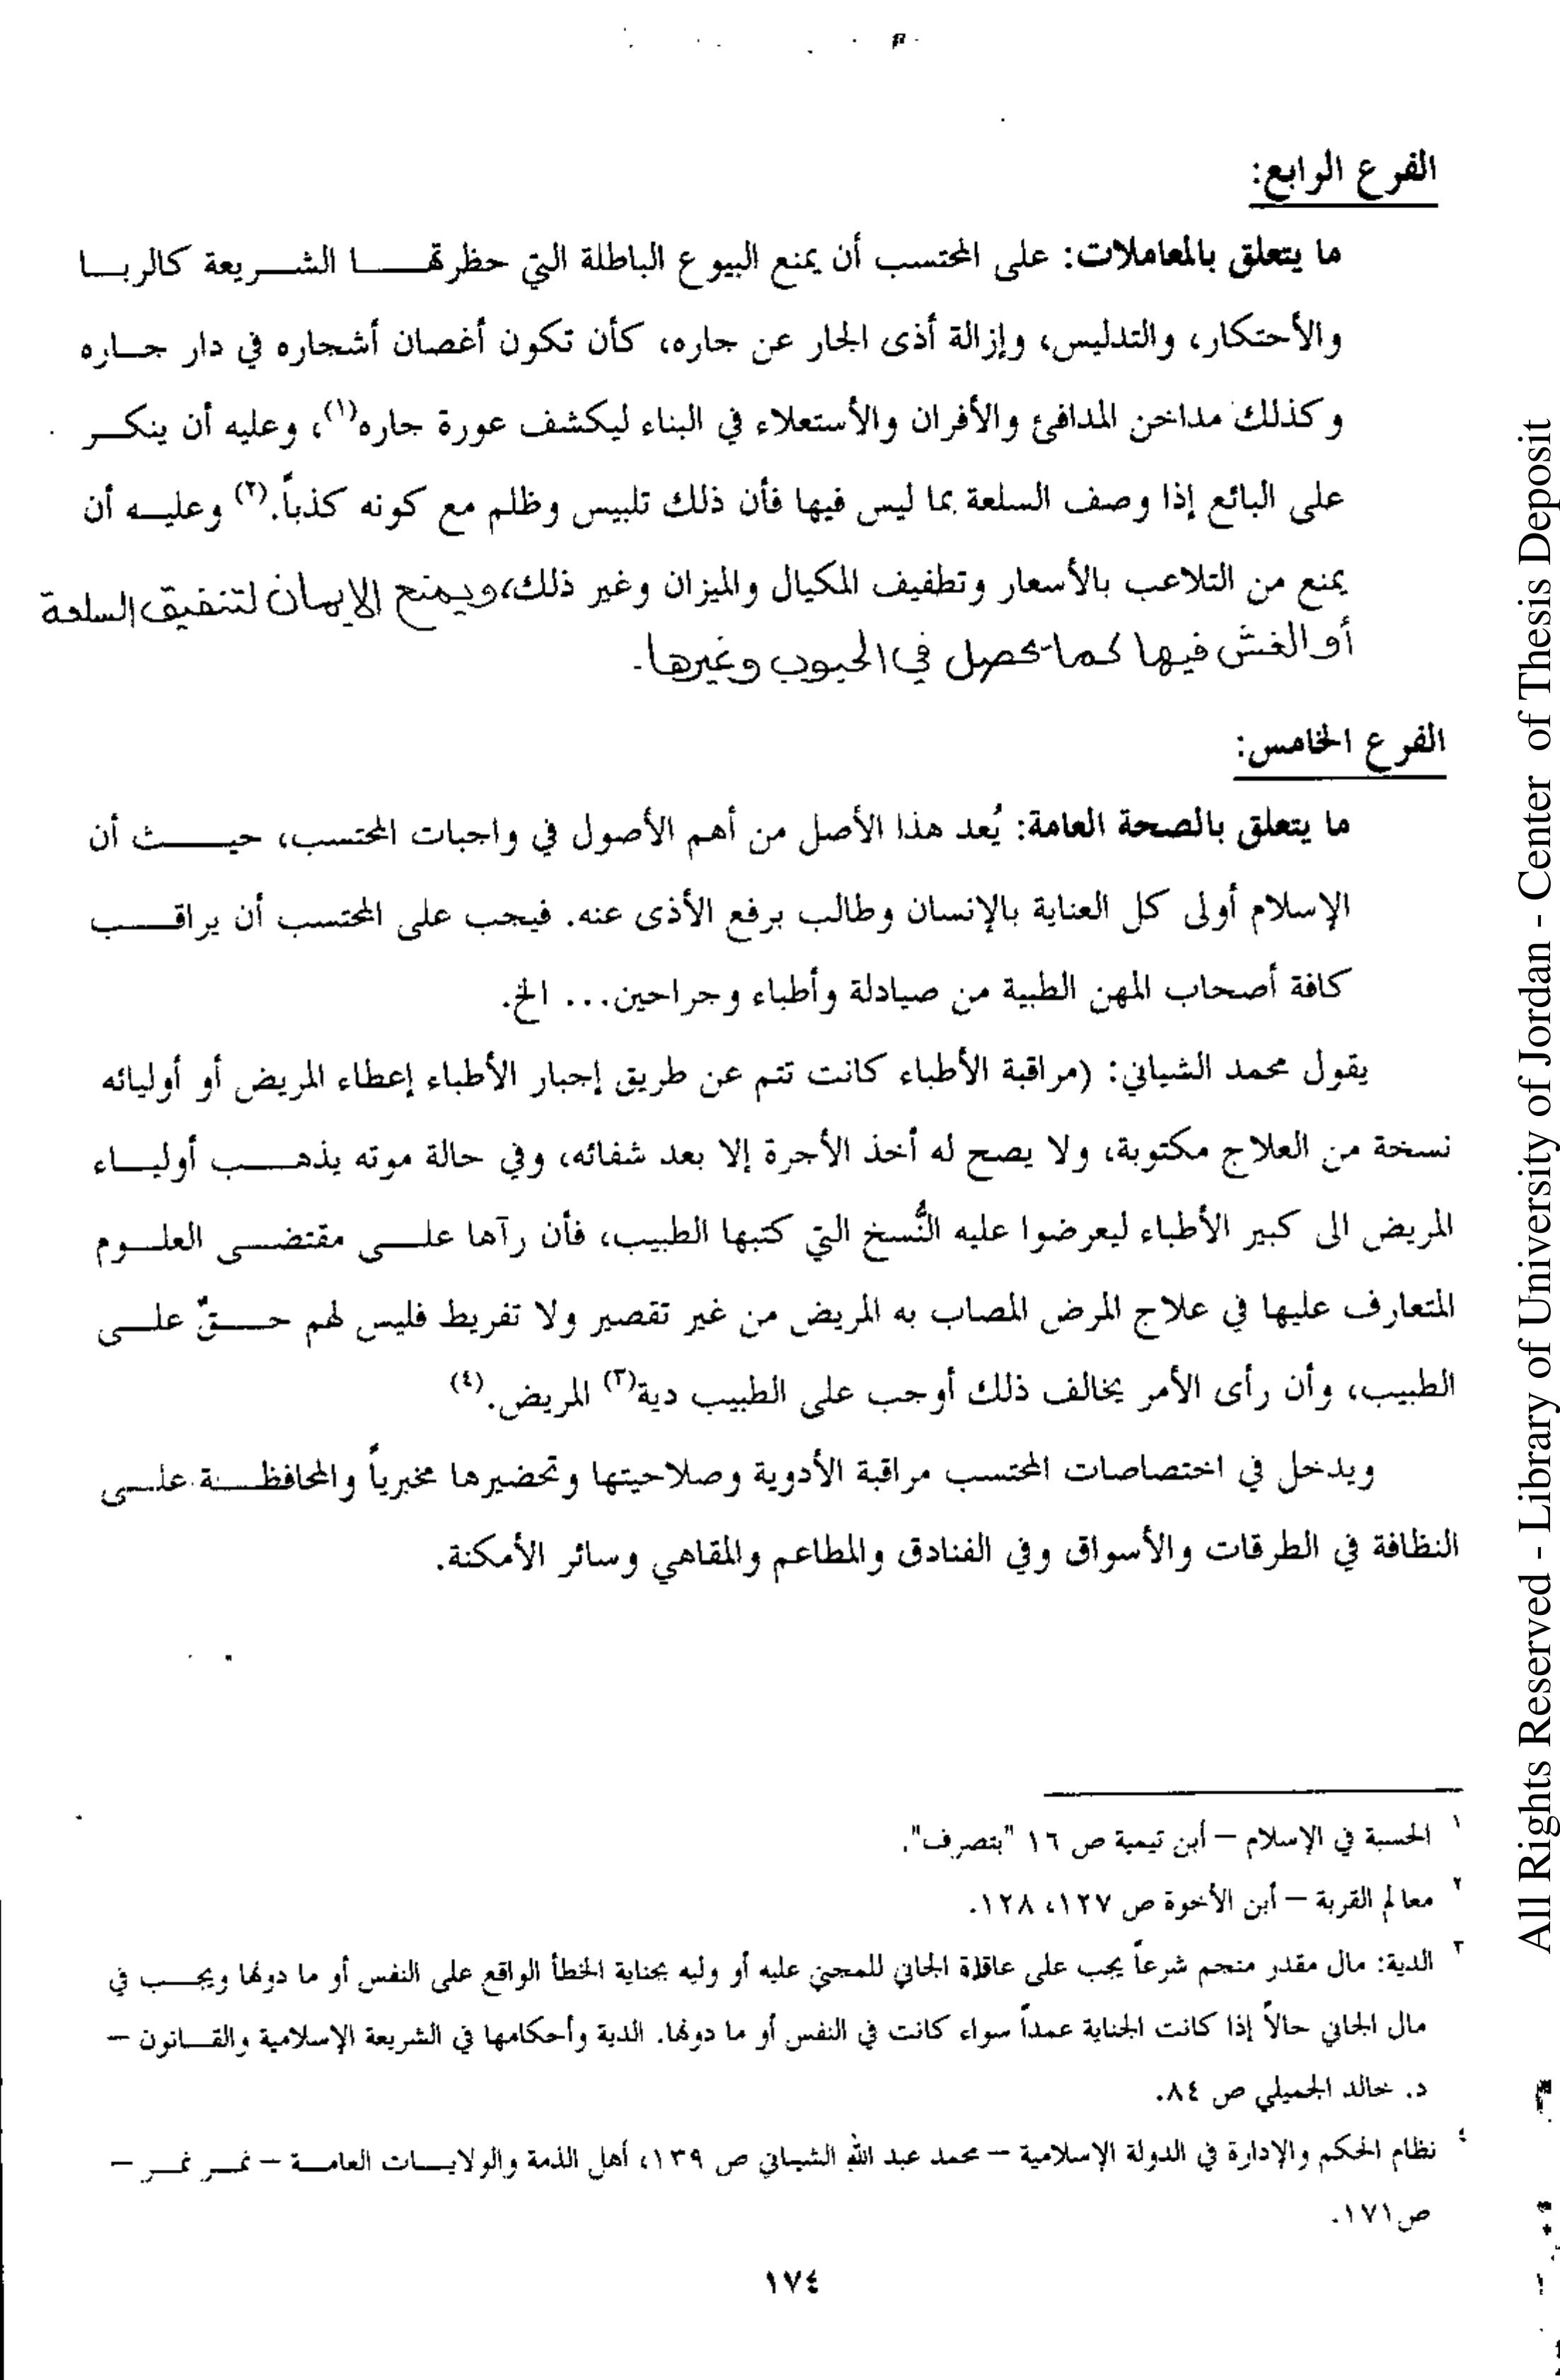 الفرع الرابع:
ما يتعلق بالمعاملات: على المحتسب أن يمنع البيوع الباطلة التي حظرتها الشريعة كالربا
والأحتكار، والتدليس، وإزالة أذى الجار عن جاره، كأن تكون أغصان أشجاره في دار جاره
وكذلك مداخن المدافئ والأفران والأستعلاء في البناء ليكشف عورة جاره(١)، وعليه أن ينكر
على البائع إذا وصف السلعة بما ليس فيها فأن ذلك تلبيس وظلم مع كونه كذباً.(٢) وعليه أن
يمنع من التلاعب بالأسعار وتطفيف المكيال والميزان وغير ذلك، ويمنح الايمان لتنفيق السلعة
أو الغش فيها كما يحصل في الحبوب وغيرها.
الفرع الخامس:
ما يتعلق بالصحة العامة: يُعد هذا الأصل من أهم الأصول في واجبات المحتسب، حيث أن
الإسلام أولى كل العناية بالإنسان وطالب برفع الأذى عنه. فيجب على المحتسب أن يراقب
كافة أصحاب المهن الطبية من صيادلة وأطباء وجراحين... الخ.
يقول محمد الشيباني: (مراقبة الأطباء كانت تتم عن طريق إجبار الأطباء إعطاء المريض أو أوليائه
نسخة من العلاج مكتوبة، ولا يصح له أخذ الأجرة إلا بعد شفائه، وفي حالة موته يذهب أولياء
المريض الى كبير الأطباء ليعرضوا عليه النُسخ التي كتبها الطبيب، فأن رآها على مقتضى العلوم
المتعارف عليها في علاج المرض المصاب به المريض من غير تقصير ولا تفريط فليس لهم حقٌ على
الطبيب، وأن رأى الأمر يخالف ذلك أوجب على الطبيب دية(٣) المريض.(٤)
ويدخل في اختصاصات المحتسب مراقبة الأدوية وصلاحيتها وتحضيرها مخبرياً والمحافظة على
النظافة في الطرقات والأسواق وفي الفنادق والمطاعم والمقاهي وسائر الأمكنة.
١ الحسبة في الإسلام – أبن تيمية ص ١٦ "بتصرف".
٢ معالم القربة – أبن الأخوة ص ١٢٧، ١٢٨.
٣ الدية: مال مقدر منجم شرعاً يجب على عاقلة الجاني للمجني عليه أو وليه بجناية الخطأ الواقع على النفس أو ما دونها ويجب في
مال الجاني حالاً إذا كانت الجناية عمداً سواء كانت في النفس أو ما دونها. الدية وأحكامها في الشريعة الإسلامية والقانون –
د. خالد الجميلي ص ٨٤.
٤ نظام الحكم والإدارة في الدولة الإسلامية – محمد عبد الله الشيباني ص ١٣٩، أهل الذمة والولايات العامة – نمر نمر –
ص١٧١.
١٧٤
All Rights Reserved - Library of University of Jordan - Center of Thesis Deposit